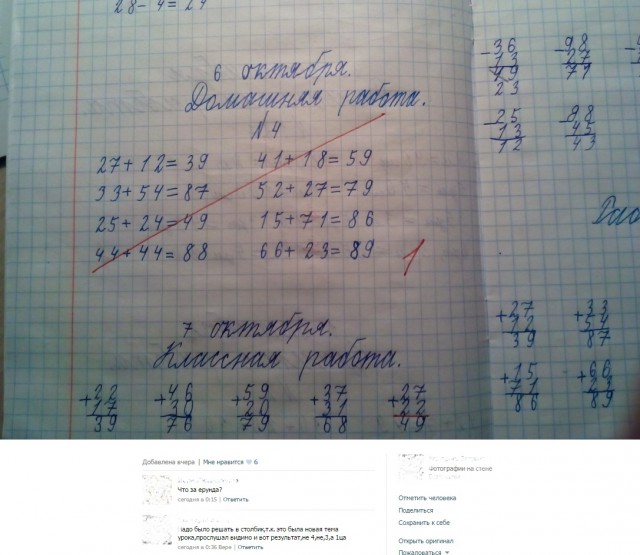 28 - 4 = 24
6 октября.
Домашняя работа.
№ 4
27 + 12 = 39    41 + 18 = 59
33 + 54 = 87    52 + 27 = 79
25 + 24 = 49    15 + 71 = 86
44 + 44 = 88    66 + 23 = 89
1
7 октября.
Классная работа.
+22 +46 +59 +37 +27
17 30 20 31 22
39 76 79 68 49
-36 -98
13 27
49 71
23
-25 -88
13 45
12 43
Раб
+27 +33
12 54
39 87
+15 +66
71 23
86 89
Добавлена вчера | Мне нравится 6
Что за ерунда?
сегодня в 0:15 | Ответить
надо было решать в столбик,т.к. это была новая тема
урока,прослушал видимо и вот результат,не 4,не,3,а 1ца
сегодня в 0:36 Вере | Ответить
Фотографии на стене
Отметить человека
Поделиться
Сохранить к себе
Открыть оригинал
Пожаловаться